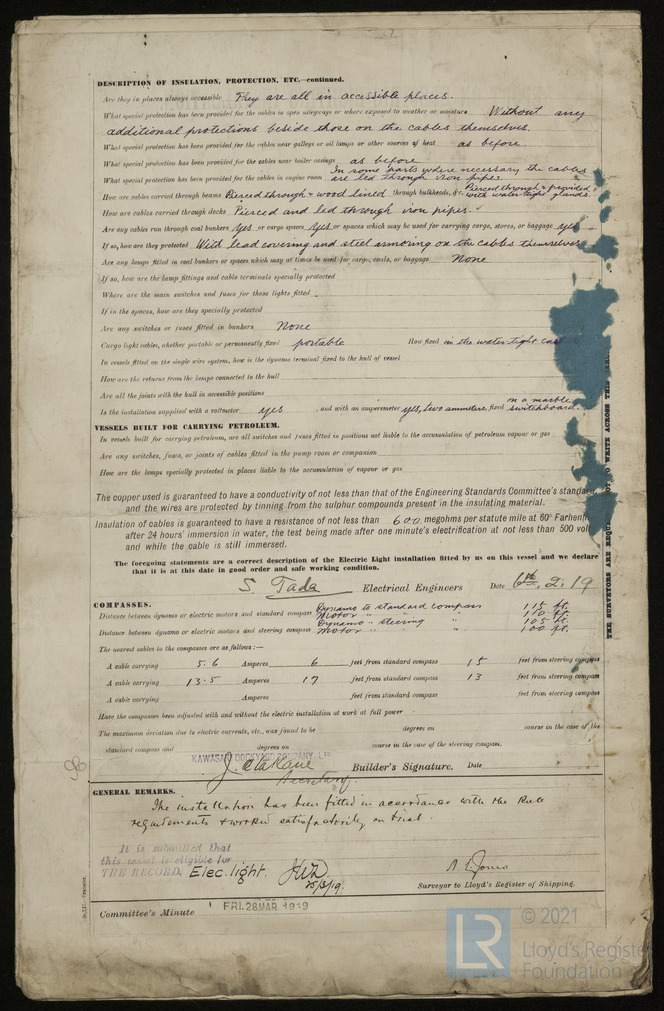 DESCRIPTION OF INSULATION, PROTECTION, ETC.—continued.
Are they in places always accessible They are all in accessible places.
What special protection has been provided for the cables in open alleyways or where exposed to weather or moisture Without any
additional protections beside those on the cables themselves.
What special protection has been provided for the cables near galleys or oil lamps or other sources of heat as before.
What special protection has been provided for the cables near boiler casings as before
What special protection has been provided for the cables in engine room In some parts where necessary the cables are led through iron pipes.
How are cables carried through beams Pierced through & wood lined through bulkheads, &c. Pierced through & provided with water tight glands.
How are cables carried through decks Pierced and led through iron pipes.
Are any cables run through coal bunkers Yes or cargo spaces Yes or spaces which may be used for carrying cargo, stores, or baggage yes
If so, how are they protected With lead covering and steel armoring on the cables themselves
Are any lamps fitted in coal bunkers or spaces which may at times be used for cargo, coals, or baggage None
If so, how are the lamp fittings and cable terminals specially protected
Where are the main switches and fuses for these lights fitted
If in the spaces, how are they specially protected
Are any switches or fuses fitted in bunkers None
Cargo light cables, whether portable or permanently fixed portable How fixed on the water-tight
In vessels fitted on the single wire system, how is the dynamo terminal fixed to the hull of vessel
How are the returns from the lamps connected to the hull
Are all the joints with the hull in accessible positions
Is the installation supplied with a voltmeter yes , and with an amperemeter yes, two ammeters, fixed on a marble switchboard.
VESSELS BUILT FOR CARRYING PETROLEUM.
In vessels built for carrying petroleum, are all switches and fuses fitted in positions not liable to the accumulation of petroleum vapour or gas
Are any switches, fuses, or joints of cables fitted in the pump room or companion
How are the lamps specially protected in places liable to the accumulation of vapour or gas
The copper used is guaranteed to have a conductivity of not less than that of the Engineering Standards Committee's standard,
and the wires are protected by tinning from the sulphur compounds present in the insulating material.
Insulation of cables is guaranteed to have a resistance of not less than 600 megohms per statute mile at 60° Farhenh
after 24 hours' immersion in water, the test being made after one minute's electrification at not less than 500 vol
and while the cable is still immersed.
The foregoing statements are a correct description of the Electric Light installation fitted by us on this vessel and we declare
that it is at this date in good order and safe working condition.
S. Tada Electrical Engineers Date 6th. 2. 19
COMPASSES.
Distance between dynamo or electric motors and standard compass Dynamo to standard compass 115 ft.
Motor " " 110 ft.
Distance between dynamo or electric motors and steering compass Dynamo " steering " 105 ft.
Motor " " 100 ft.
The nearest cables to the compasses are as follows:—
A cable carrying 5.6 Amperes 6 feet from standard compass 15 feet from steering compass
A cable carrying 13.5 Amperes 17 feet from standard compass 13 feet from steering compass
A cable carrying Amperes feet from standard compass feet from steering compass
Have the compasses been adjusted with and without the electric installation at work at full power
The maximum deviation due to electric currents, etc., was found to be degrees on course in the case of the
standard compass and degrees on course in the case of the steering compass.
KAWASAKI DOCKYARD COMPANY, LTD
Secretary. Builder's Signature. Date
GENERAL REMARKS.
The installation has been fitted in accordance with the Rule
requirements & worked satisfactorily on trial.
It is submitted that
this vessel is eligible for
THE RECORD. Elec. light. 25/3/19.
Surveyor to Lloyd's Register of Shipping.
Committee's Minute FRI. 28 MAR. 1919
THE SURVEYORS ARE REQUESTED NOT TO WRITE ACROSS THIS
LR © 2021
Lloyd's Register
Foundation